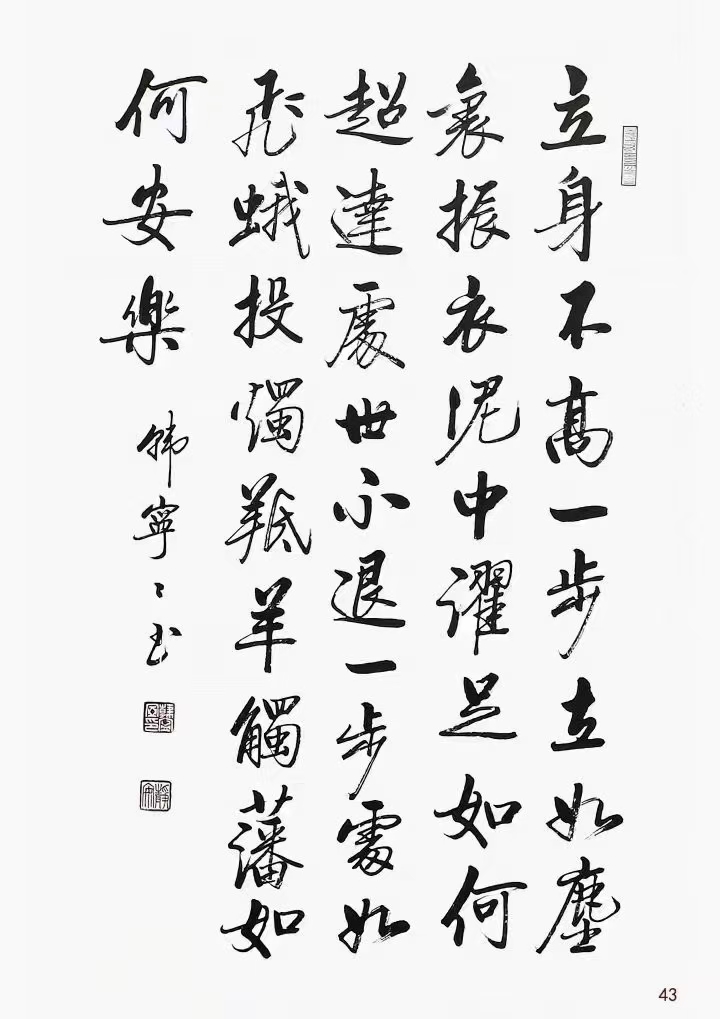 立身不高一步立如塵
裏振衣泥中濯足如何
超達處世不退一步處如
飛蛾投燭羝羊觸藩如
何安樂
韩寧寧书
43